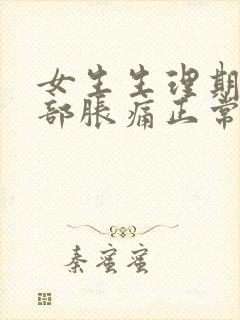 女生生理期
部胀痛正常
秦蜜蜜